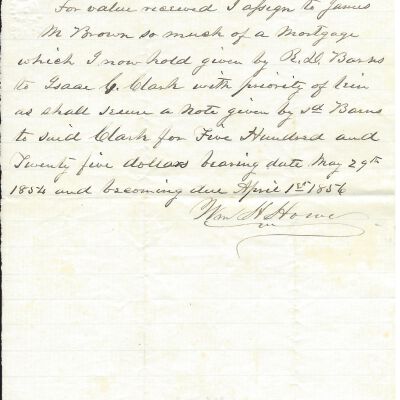 For value received I assign to James
M Brown so much of a Mortgage
which I now hold given by R. D. Barns
to Isaac C. Clark with priority of lien
as shall secure a note given by sd Barns
to said Clark for Five Hundred and
Twenty five dollars bearing date May 29th
1854 and becoming due April 1st 1856
Wm H Howe